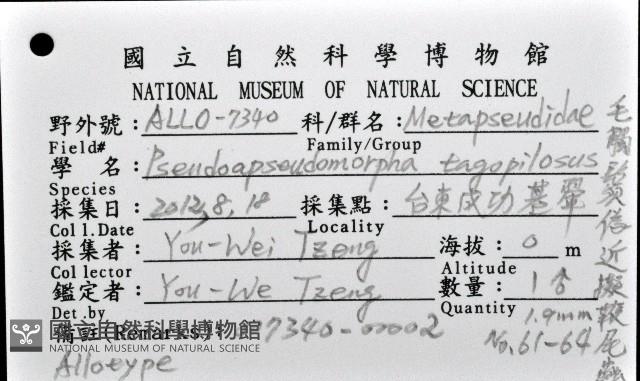 國立自然科學博物館
NATIONAL MUSEUM OF NATURAL SCIENCE
野外號：ALLO-7340 科/群名：Metapseudidae
Field# Family/Group
學 名：Pseudoapseudomorpha tagopilosus
Species
採集日：2012,8,18 採集點：台東成功基翬
Coll.Date Locality
採集者：You-Wei Tzeng 海拔：0 m
Collector Altitude
鑑定者：You-We Tzeng 數量：1
Det.by Quantity 1.9mm
備註(Remarks)：7340-00002 No.61-64
Allotype
國立自然科學博物館
NATIONAL MUSEUM OF NATURAL SCIENCE
毛觸鬚倍近擬鞭尾蟲